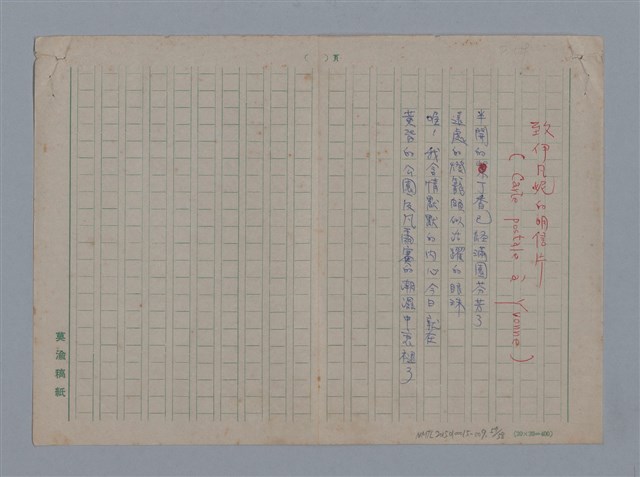 致伊凡妮的明信片
(Carte postale à Yvonne)
半開的丁香已經滿園芬芳了
遠處的燈籠顏似活躍的眼珠
唯！我含情默默的內心今日就在
黃昏的公園及凡爾賽的潮濕中衰褪了
( )頁
莫渝稿紙
(20×20=400)